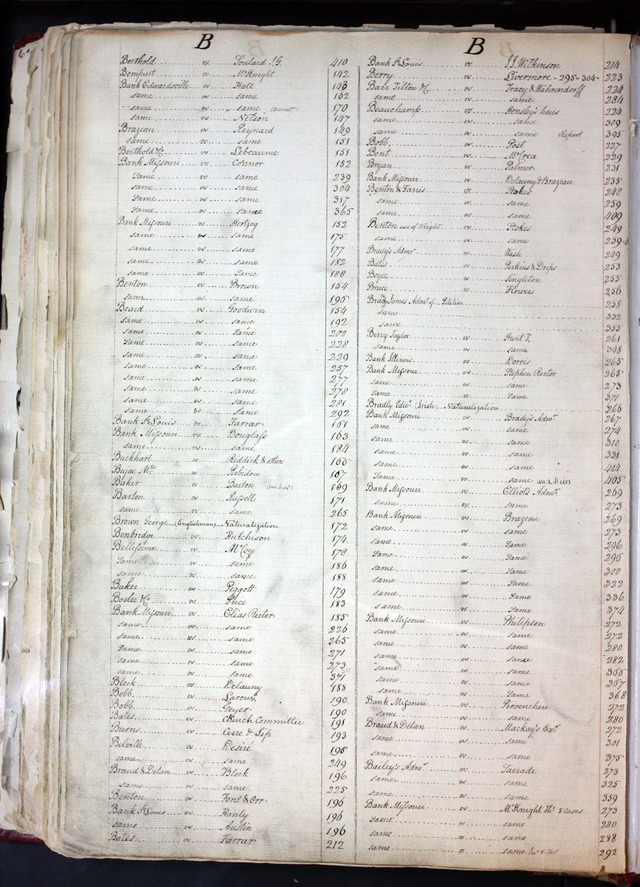 B
Berthold vs Soulard J.G. 410
Bompart vs McKnight 142
Bank Edwardsville vs Hall 143
same vs same 162
same vs same 170
same vs Nelson 147
Brazeau vs Reynard 149
same vs same 151
Berthold &c. vs Lebeaume 151
Bank Missouri vs Connor 152
same vs same 239
same vs same 304
same vs same 317
same vs same 365
Bank Missouri vs Hertzog 152
same vs same 175
same vs same 177
same vs same 182
same vs same 188
Benton vs Brown 154
same vs same 195
Beard vs Goodwin 154
same vs same 192
same vs same 200
same vs same 228
same vs same 229
same vs same 257
same vs same 277
same vs same 278
same vs same 281
same vs same 292
Bank St Louis vs Farrar 151
Bank Missouri vs Douglass 163
same vs same 184
Burkhart vs Riddick & others
Bujac Mw vs Robidou 167
Baker vs Barton 169
Barton vs Russell 171
same vs same 265
Brown George (Englishman) Naturalization 172
Benbridge vs Hutchison 174
Bellissime vs McCoy 178
same vs same 186
same vs same 188
Baker vs Piggott 179
Bosles &c vs Price 183
Bank Missouri vs Elias Rector 185
same vs same 226
same vs same 265
same vs same 271
same vs same 273
same vs same 371
Block vs Delauny 188
Bobb vs Laroux 190
Bobb vs Geyer 190
Bates vs Church Committee 191
Burns vs Cerre & Sip 193
Belville vs Desiré 195
same vs same 249
Braud & Delan vs Block 196
same vs same 225
Benton vs Ford & Orr 196
Bank St Louis vs Hanly 196
same vs Austin 196
Bates vs Farrar 212
B
Bank St Louis vs J.J. Wilkinson 214
Berry vs Livermore - 295-304- 223
Barr Tillon &c. vs Tracy & Wahrendorff 224
same vs same 284
Beauchamp vs Hensley's heirs 224
same vs same 309
same vs same Report 395
Bobb vs Post 227
Bent vs McCrea 229
Bryan vs Palmer 231
Bank Missouri vs Delauny & Brazeau 235
Benton & Farris vs Stokes 248
same vs same 259
same vs same 409
Benton use of Wright vs Stokes 249
same vs same 259-4
Brady's Admr vs Wash 249
Bates vs Perkins & Drips 253
Boyce vs Singleton 255
Bruce vs Flowers 256
Brady James Admr. of Petition 258
same 332
same 333
Berry Taylor vs Hunt T. 261
same vs same 348
Bank Illinois vs Morris 265
Bank Missouri vs Stephen Rector 265
same vs same 273
same vs same 371
Bradly Edwd (Irish) Naturalization 266
Bank Missouri vs Brady's Admr 267
same vs same 274
same vs same 310
same vs same 331
same vs same 404
same vs same and Heirs 405
Bank Missouri vs Elliot's Admr 269
same vs same 273
Bank Missouri vs Brazeau 269
same vs same 273
same vs same 296
same vs same 296
same vs same 300
same vs same 322
same vs same 336
same vs same 374
Bank Missouri vs Philipson 272
same vs same 272
same vs same 280
same vs same 282
same vs same 355
same vs same 357
same vs same 368
Bank Missouri vs Provenchere 272
same vs same 280
Braud & Delan vs Mackay's Exr 272
same vs same 301
same vs same 375
Bailey's Admr vs Laerade 273
same vs same 325
same vs same 359
Bank Missouri vs McKnight Ths 5 Cases 273
same vs same 280
same vs same 288
same vs same 292